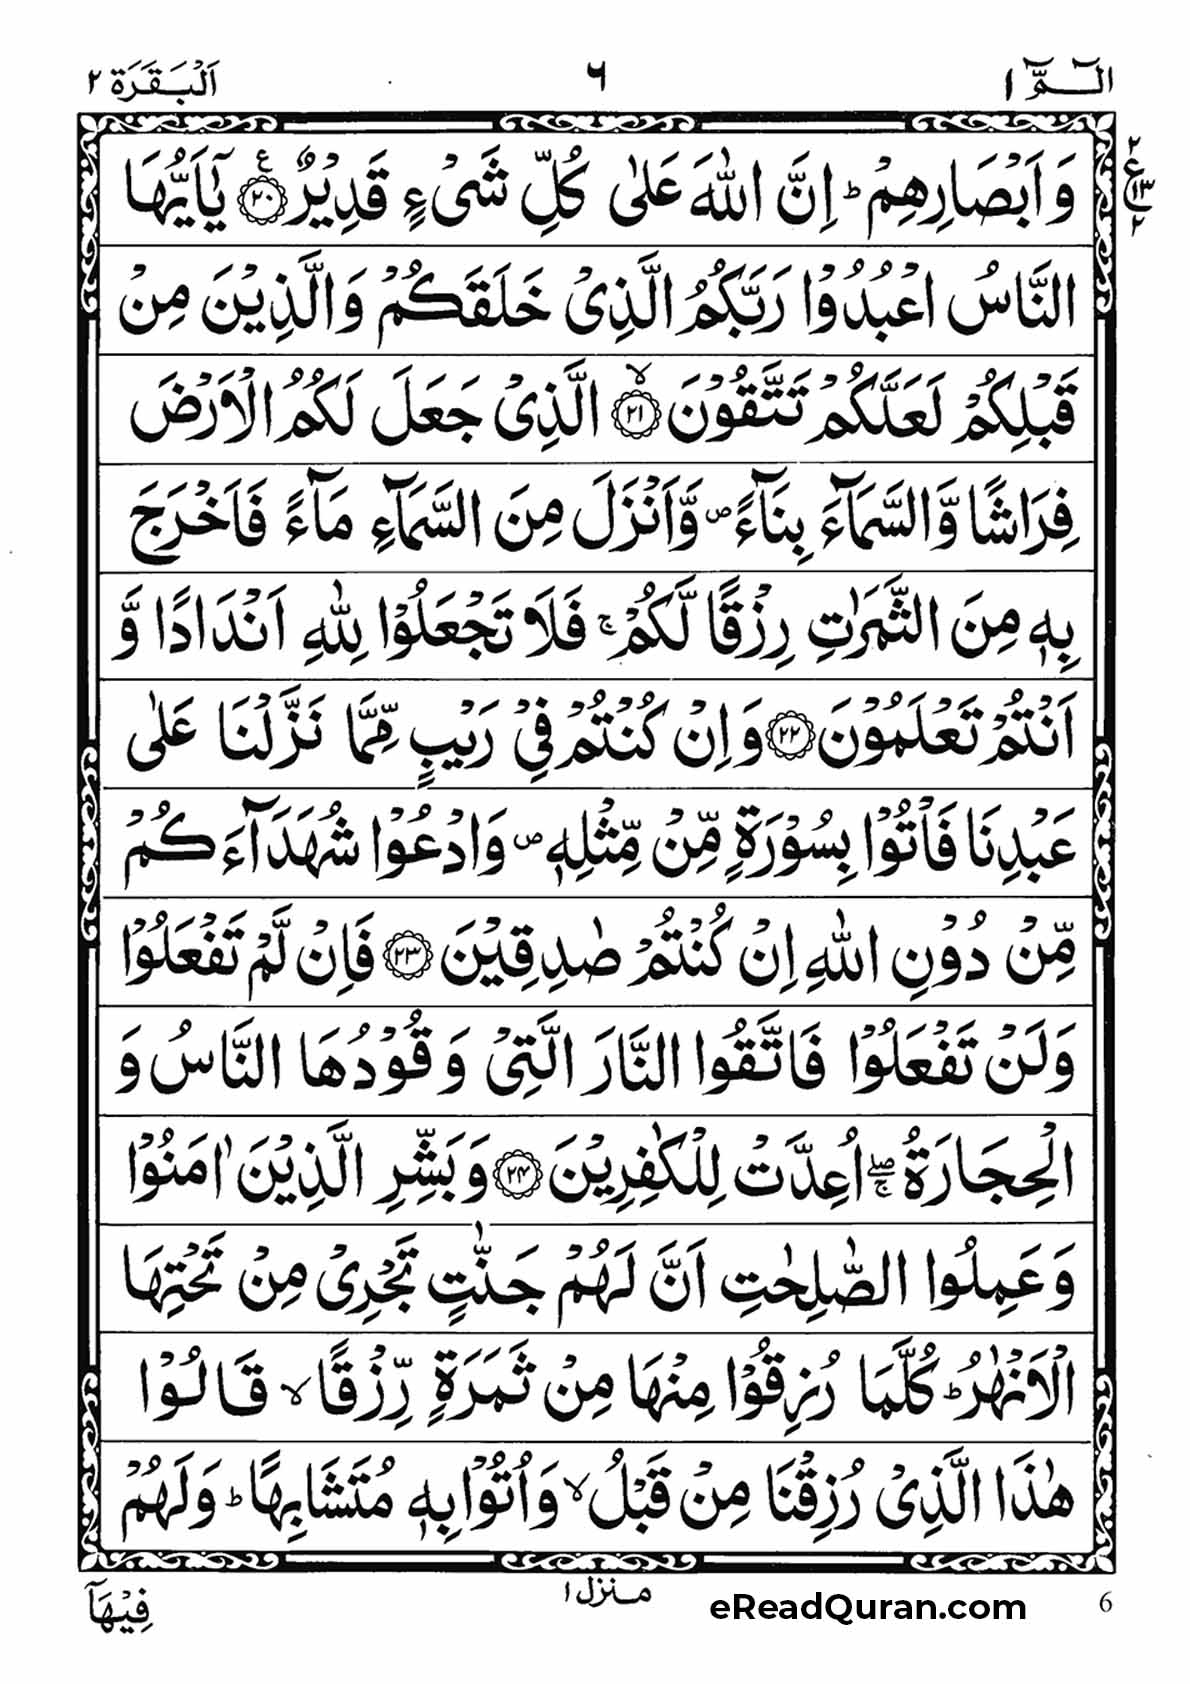 الٓـمّٓ ١ ٦ اَلْبَقَرَة ٢
٢ ع ١٣ ٢
وَاَبْصَارِهِمْ ؕ اِنَّ اللّٰهَ عَلٰى كُلِّ شَىْءٍ قَدِيْرٌ ۧ ﴿۲۰﴾ يٰۤاَيُّهَا
النَّاسُ اعْبُدُوْا رَبَّكُمُ الَّذِىْ خَلَقَكُمْ وَالَّذِيْنَ مِنْ
قَبْلِكُمْ لَعَلَّكُمْ تَتَّقُوْنَ ۙ ﴿۲۱﴾ الَّذِىْ جَعَلَ لَكُمُ الْاَرْضَ
فِرَاشًا وَّالسَّمَآءَ بِنَآءً ۪ وَّاَنْزَلَ مِنَ السَّمَآءِ مَآءً فَاَخْرَجَ
بِهٖ مِنَ الثَّمَرٰتِ رِزْقًا لَّكُمْ ۚ فَلَا تَجْعَلُوْا لِلّٰهِ اَنْدَادًا وَّ
اَنْتُمْ تَعْلَمُوْنَ ﴿۲۲﴾ وَاِنْ كُنْتُمْ فِىْ رَيْبٍ مِّمَّا نَزَّلْنَا عَلٰى
عَبْدِنَا فَاْتُوْا بِسُوْرَةٍ مِّنْ مِّثْلِهٖ ۪ وَادْعُوْا شُهَدَآءَكُمْ
مِّنْ دُوْنِ اللّٰهِ اِنْ كُنْتُمْ صٰدِقِيْنَ ﴿۲۳﴾ فَاِنْ لَّمْ تَفْعَلُوْا
وَلَنْ تَفْعَلُوْا فَاتَّقُوا النَّارَ الَّتِىْ وَقُوْدُهَا النَّاسُ وَ
الْحِجَارَةُ ۖۚ اُعِدَّتْ لِلْكٰفِرِيْنَ ﴿۲۴﴾ وَبَشِّرِ الَّذِيْنَ اٰمَنُوْا
وَعَمِلُوا الصّٰلِحٰتِ اَنَّ لَهُمْ جَنّٰتٍ تَجْرِىْ مِنْ تَحْتِهَا
الْاَنْهٰرُ ؕ كُلَّمَا رُزِقُوْا مِنْهَا مِنْ ثَمَرَةٍ رِّزْقًا ۙ قَالُوْا
هٰذَا الَّذِىْ رُزِقْنَا مِنْ قَبْلُ ۙ وَاُتُوْا بِهٖ مُتَشَابِهًا ؕ وَلَهُمْ
منزل ١
فِيْهَآ
eReadQuran.com
6